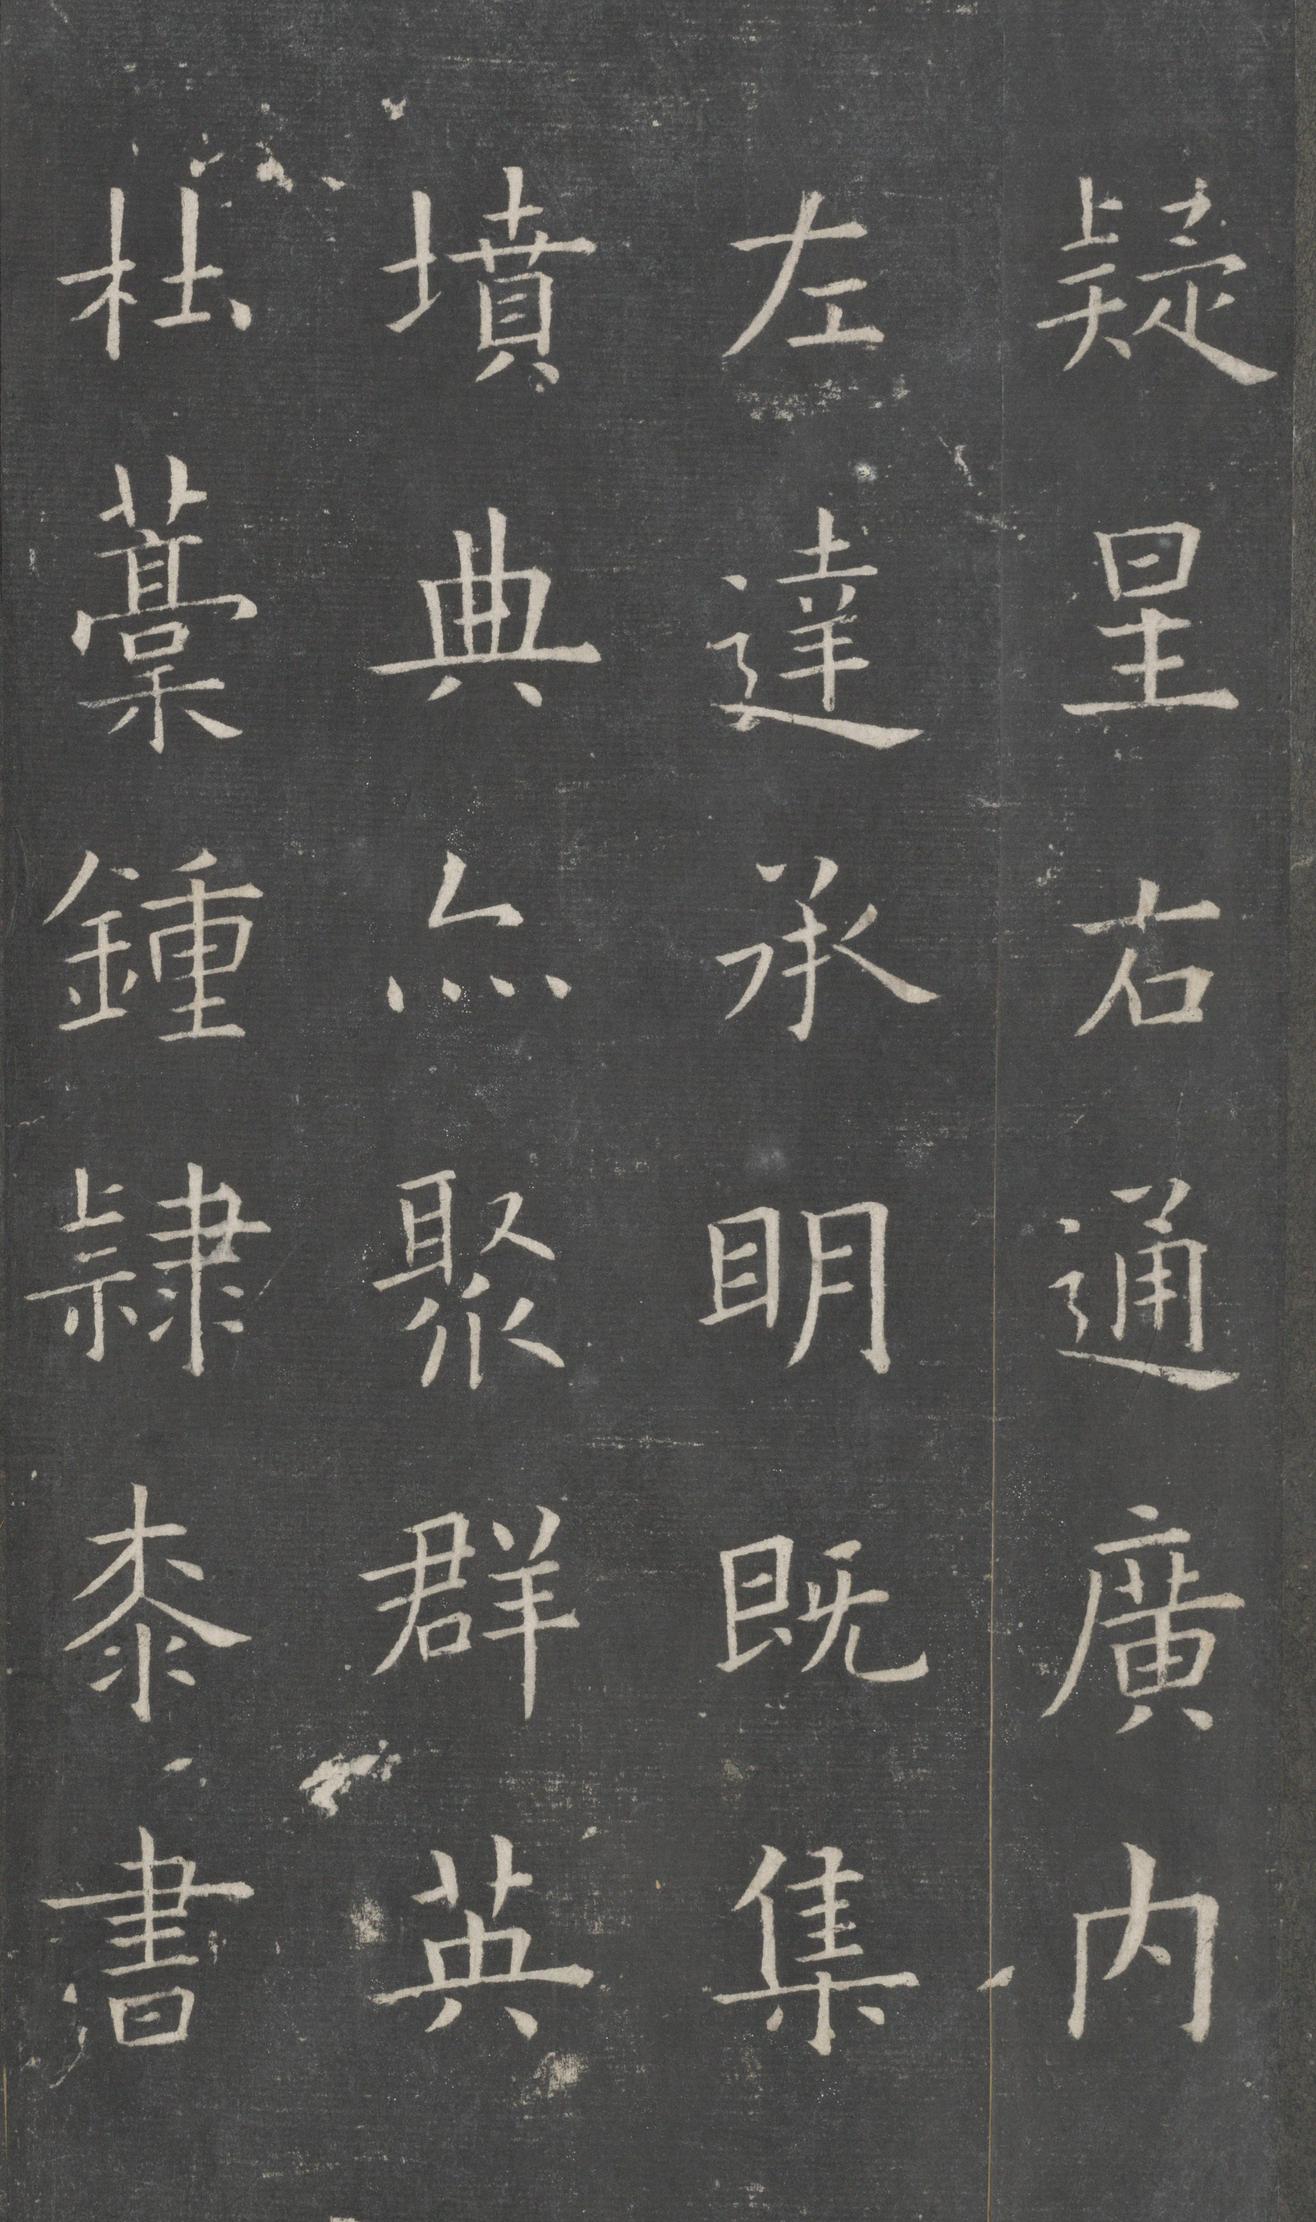 疑星右通廣内
左達承明既集
墳典亦聚群英
杜藁鍾隷柒書